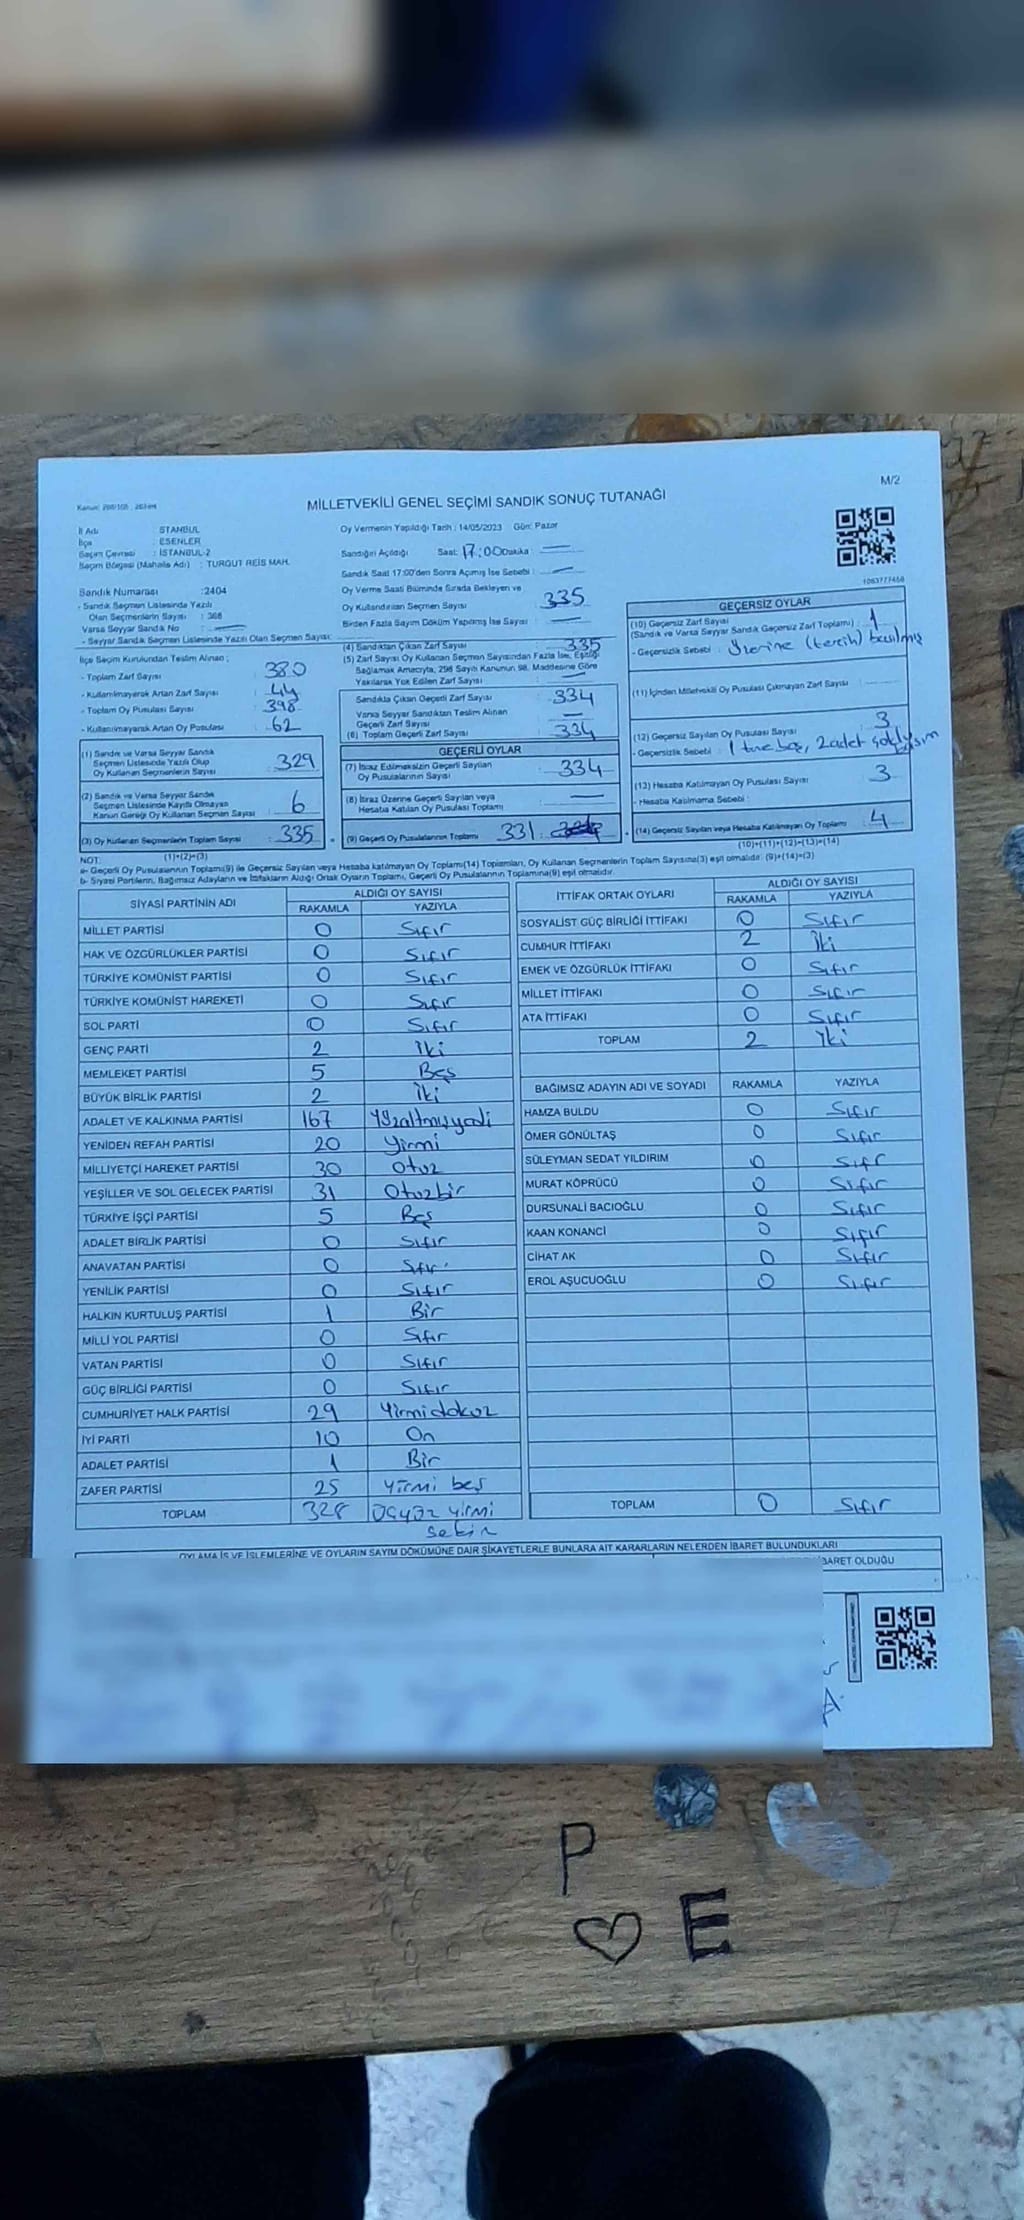 M/2
MİLLETVEKİLİ GENEL SEÇİMİ SANDIK SONUÇ TUTANAĞI
İl Adı : İSTANBUL
İlçe : ESENLER
Seçim Çevresi : İSTANBUL-2
Seçim Bölgesi (Mahalle Adı) : TURGUT REİS MAH.
Sandık Numarası : 2404
- Sandık Seçmen Listesinde Yazılı
Olan Seçmenlerin Sayısı : 368
Varsa Seyyar Sandık No : —
- Seyyar Sandık Seçmen Listesinde Yazılı Olan Seçmen Sayısı:
İlçe Seçim Kurulundan Teslim Alınan ;
- Toplam Zarf Sayısı : 380
- Kullanılmayarak Artan Zarf Sayısı : 44
- Toplam Oy Pusulası Sayısı : 398
- Kullanılmayarak Artan Oy Pusulası : 62
(1) Sandık ve Varsa Seyyar Sandık
Seçmen Listesinde Yazılı Olup
Oy Kullanan Seçmenlerin Sayısı : 329
(2) Sandık ve Varsa Seyyar Sandık
Seçmen Listesinde Kayıtlı Olmayan
Kanun Gereği Oy Kullanan Seçmen Sayısı : 6
(3) Oy Kullanan Seçmenlerin Toplam Sayısı : 335
(1)+(2)=(3)
Oy Vermenin Yapıldığı Tarih : 14/05/2023 Gün: Pazar
Sandığın Açıldığı Saat: 17:00 Dakika : —
Sandık Saat 17:00'den Sonra Açılmış İse Sebebi : —
Oy Verme Saati Bitiminde Sırada Bekleyen ve
Oy Kullandırılan Seçmen Sayısı : 335
Birden Fazla Sayım Döküm Yapılmış İse Sayısı : —
(4) Sandıktan Çıkan Zarf Sayısı : 335
(5) Zarf Sayısı Oy Kullanan Seçmen Sayısından Fazla İse, Eşitliği
Sağlamak Amacıyla, 298 Sayılı Kanunun 98. Maddesine Göre
Yakılarak Yok Edilen Zarf Sayısı : —
Sandıkta Çıkan Geçerli Zarf Sayısı : 334
Varsa Seyyar Sandıktan Teslim Alınan
Geçerli Zarf Sayısı : —
(6) Toplam Geçerli Zarf Sayısı : 334
GEÇERLİ OYLAR
(7) İtiraz Edilmeksizin Geçerli Sayılan
Oy Pusulalarının Sayısı : 334
(8) İtiraz Üzerine Geçerli Sayılan veya
Hesaba Katılan Oy Pusulası Toplamı : —
(9) Geçerli Oy Pusulalarının Toplamı : 331
1063777458
GEÇERSİZ OYLAR
(10) Geçersiz Zarf Sayısı
(Sandık ve Varsa Seyyar Sandık Geçersiz Zarf Toplamı) : 1
- Geçersizlik Sebebi : Üzerine (tercih) basılmış
(11) İçinden Milletvekili Oy Pusulası Çıkmayan Zarf Sayısı :
(12) Geçersiz Sayılan Oy Pusulası Sayısı : 3
- Geçersizlik Sebebi : 1 tane boş, 2 adet
(13) Hesaba Katılmayan Oy Pusulası Sayısı : 3
- Hesaba Katılmama Sebebi :
(14) Geçersiz Sayılan veya Hesaba Katılmayan Oy Toplamı : 4
(10)+(11)+(12)+(13)=(14)
NOT:
a- Geçerli Oy Pusulalarının Toplamı(9) ile Geçersiz Sayılan veya Hesaba katılmayan Oy Toplamı(14) Toplamları, Oy Kullanan Seçmenlerin Toplam Sayısına(3) eşit olmalıdır. (9)+(14)=(3)
b- Siyasi Partilerin, Bağımsız Adayların ve İttifakların Aldığı Ortak Oyların Toplamı, Geçerli Oy Pusulalarının Toplamına(9) eşit olmalıdır.
SİYASİ PARTİNİN ADI ALDIĞI OY SAYISI
RAKAMLA YAZIYLA
MİLLET PARTİSİ 0 Sıfır
HAK VE ÖZGÜRLÜKLER PARTİSİ 0 Sıfır
TÜRKİYE KOMÜNİST PARTİSİ 0 Sıfır
TÜRKİYE KOMÜNİST HAREKETİ 0 Sıfır
SOL PARTİ 0 Sıfır
GENÇ PARTİ 2 İki
MEMLEKET PARTİSİ 5 Beş
BÜYÜK BİRLİK PARTİSİ 2 İki
ADALET VE KALKINMA PARTİSİ 167 Yüzaltmışyedi
YENİDEN REFAH PARTİSİ 20 Yirmi
MİLLİYETÇİ HAREKET PARTİSİ 30 Otuz
YEŞİLLER VE SOL GELECEK PARTİSİ 31 Otuzbir
TÜRKİYE İŞÇİ PARTİSİ 5 Beş
ADALET BİRLİK PARTİSİ 0 Sıfır
ANAVATAN PARTİSİ 0 Sıfır
YENİLİK PARTİSİ 0 Sıfır
HALKIN KURTULUŞ PARTİSİ 1 Bir
MİLLİ YOL PARTİSİ 0 Sıfır
VATAN PARTİSİ 0 Sıfır
GÜÇ BİRLİĞİ PARTİSİ 0 Sıfır
CUMHURİYET HALK PARTİSİ 29 Yirmidokuz
İYİ PARTİ 10 On
ADALET PARTİSİ 1 Bir
ZAFER PARTİSİ 25 Yirmi beş
TOPLAM 328 üçyüz yirmi
sekiz
İTTİFAK ORTAK OYLARI ALDIĞI OY SAYISI
RAKAMLA YAZIYLA
SOSYALİST GÜÇ BİRLİĞİ İTTİFAKI 0 Sıfır
CUMHUR İTTİFAKI 2 İki
EMEK VE ÖZGÜRLÜK İTTİFAKI 0 Sıfır
MİLLET İTTİFAKI 0 Sıfır
ATA İTTİFAKI 0 Sıfır
TOPLAM 2 İki
BAĞIMSIZ ADAYIN ADI VE SOYADI RAKAMLA YAZIYLA
HAMZA BULDU 0 Sıfır
ÖMER GÖNÜLTAŞ 0 Sıfır
SÜLEYMAN SEDAT YILDIRIM 0 Sıfır
MURAT KÖPRÜCÜ 0 Sıfır
DURSUNALİ BACIOĞLU 0 Sıfır
KAAN KONANCİ 0 Sıfır
CİHAT AK 0 Sıfır
EROL AŞUCUOĞLU 0 Sıfır
TOPLAM 0 Sıfır
OYLAMA İŞ VE İŞLEMLERİNE VE OYLARIN SAYIM DÖKÜMÜNE DAİR ŞİKAYETLERLE BUNLARA AİT KARARLARIN NELERDEN İBARET BULUNDUKLARI
İBARET OLDUĞU
P
♡ E